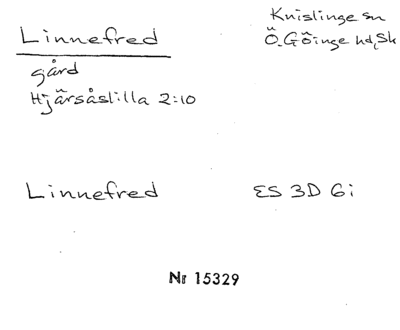 Linnefred
Knislinge sn
Ö. Göinge hd, Sk
gård
Hjärsåslilla 2:10
Linnefred
ES 3D 6i
Nr 15329